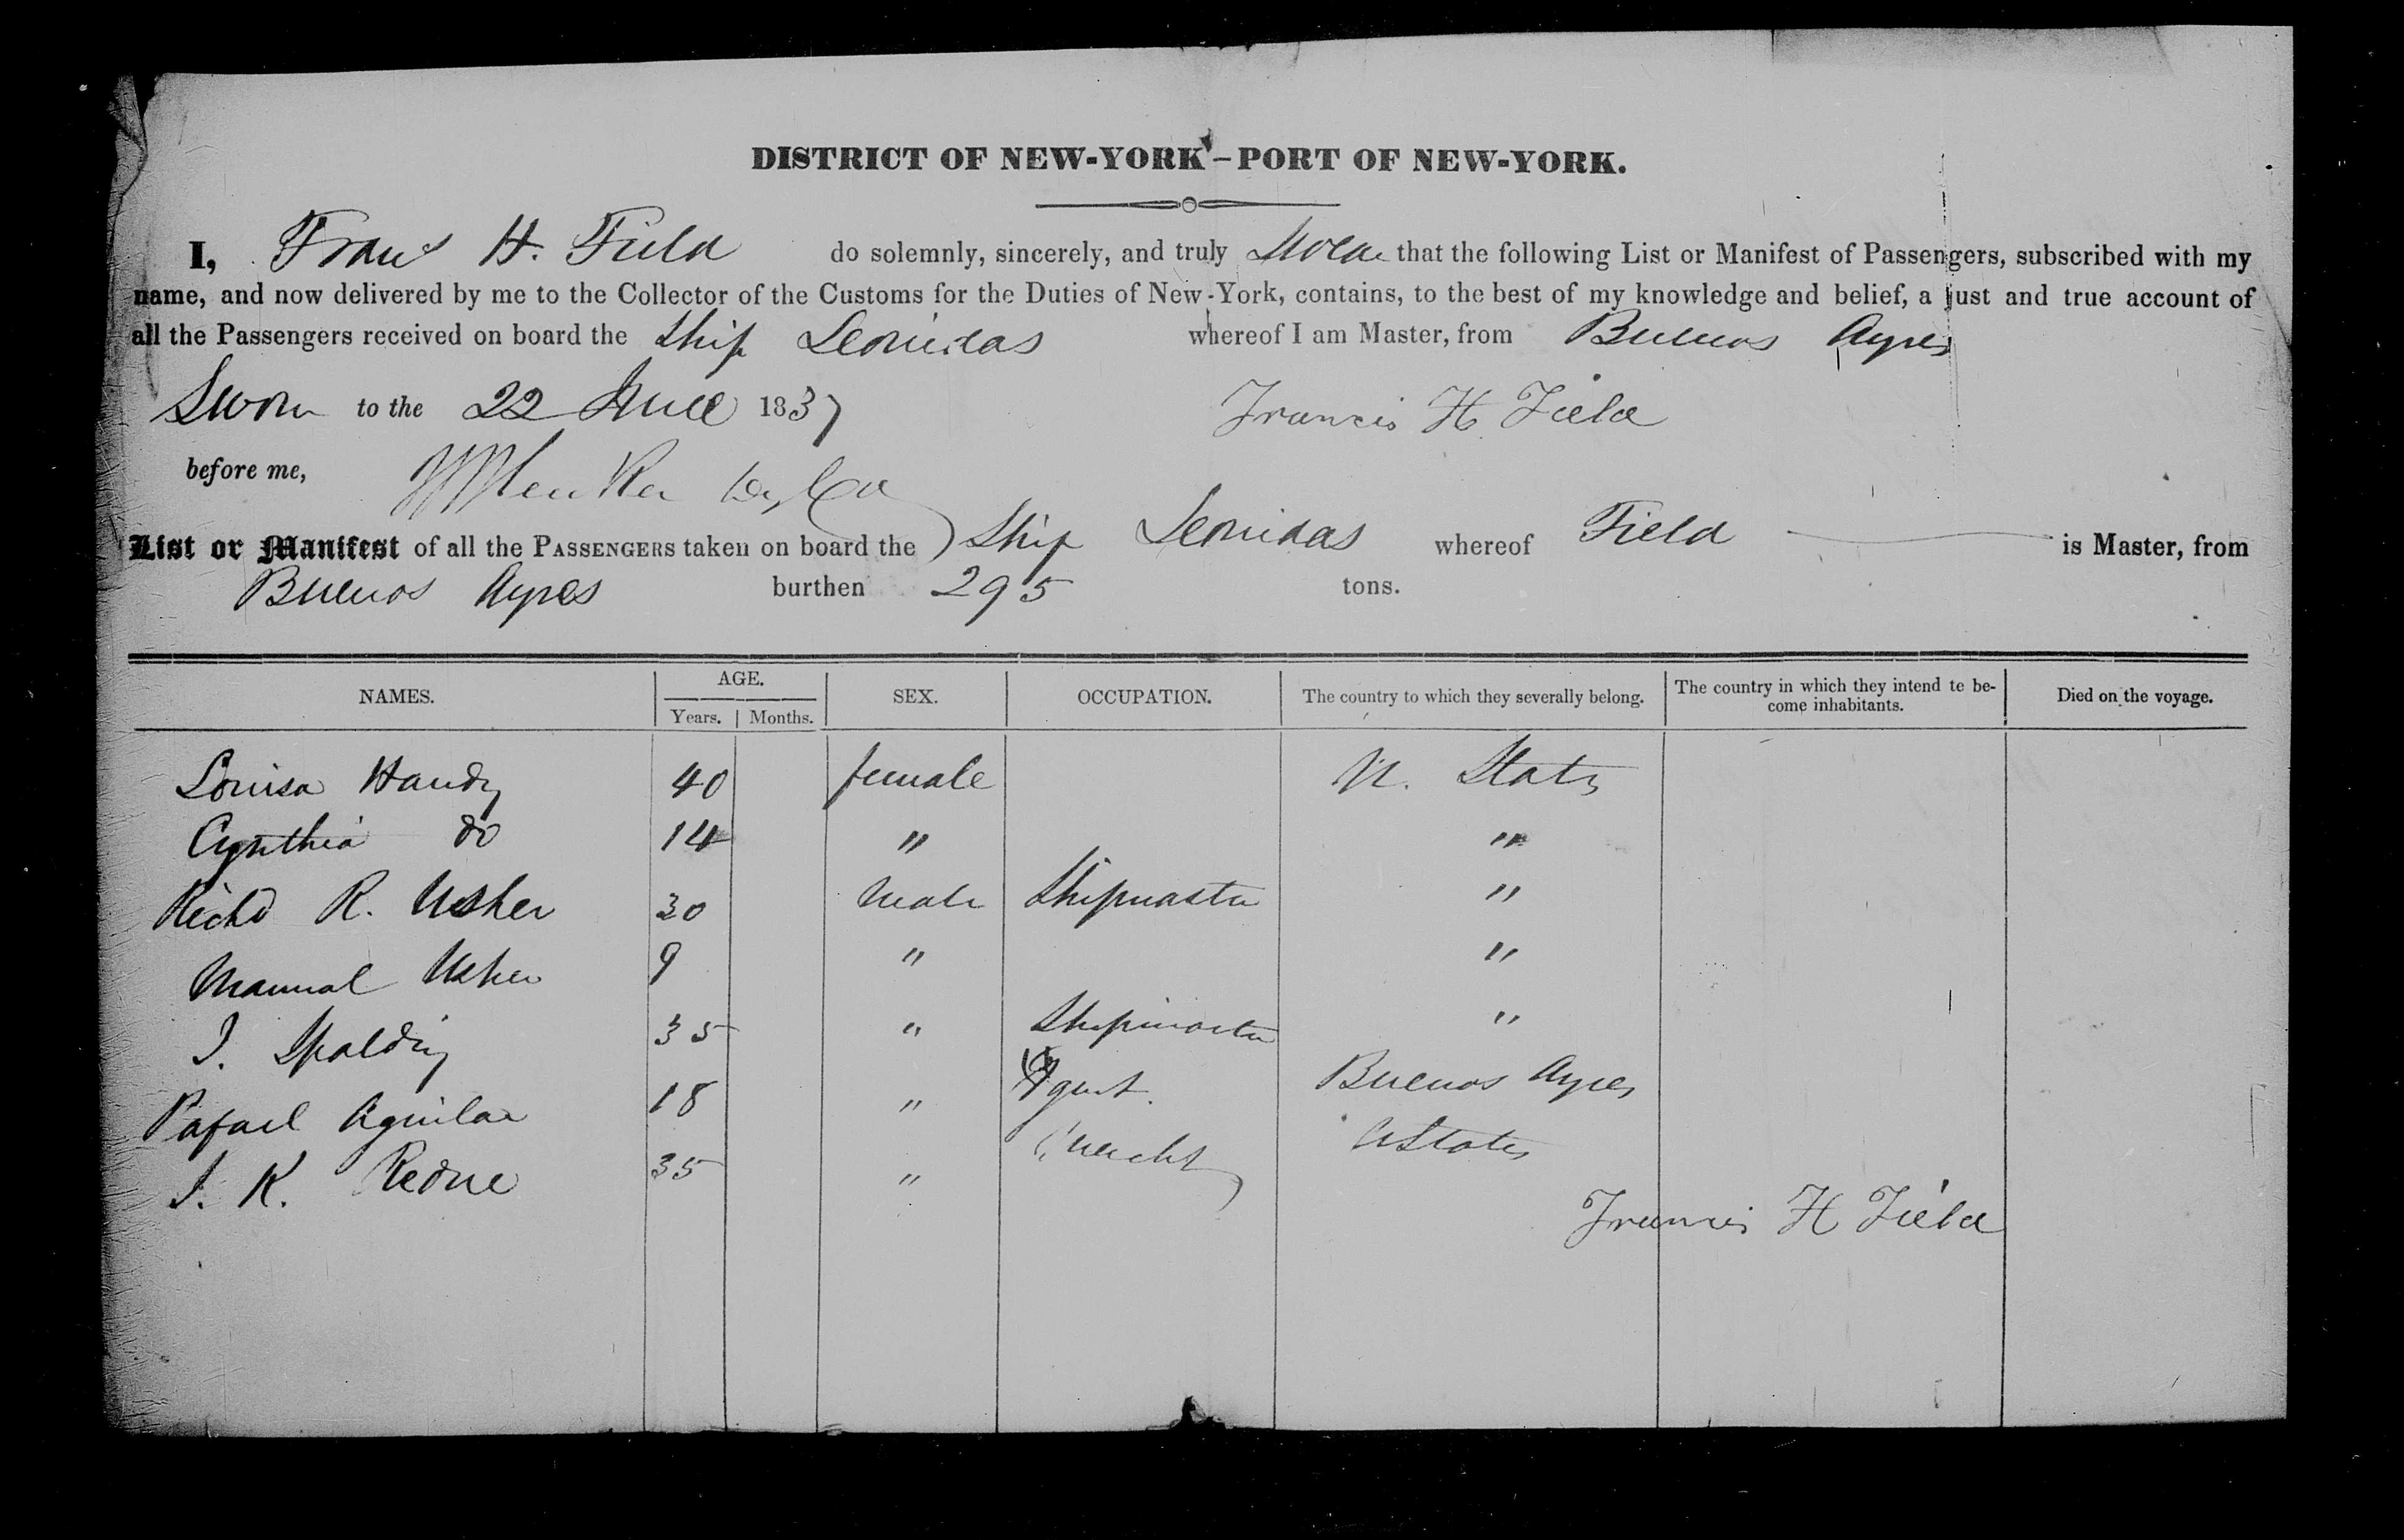 DISTRICT OF NEW-YORK–PORT OF NEW-YORK.
I, Frans H. Field do solemnly, sincerely, and truly that the following List or Manifest of Passengers, subscribed with my
name, and now delivered by me to the Collector of the Customs for the Duties of New-York, contains, to the best of my knowledge and belief, a just and true account of
all the Passengers received on board the Ship Leonidas whereof I am Master, from Buenos Ayres
Sworn to the 22 June 1837 Francis H. Field
before me,
List or Manifest of all the PASSENGERS taken on board the Ship Leonidas whereof Field is Master, from
Buenos Ayres burthen 295 tons.
NAMES. AGE. Years. Months. SEX. OCCUPATION. The country to which they severally belong. The country in which they intend te be-come inhabitants. Died on the voyage.
Louisa Handy 40 female U. States
Cynthia do 14 " "
Richd R. Usher 30 Male Shipmaster "
Manual Usher 9 " "
J. Spalding 35 " Shipmaster "
Rafael Aguilar 18 " Agent. Buenos Ayres
J. K. 35 " UStates
Francis H Field